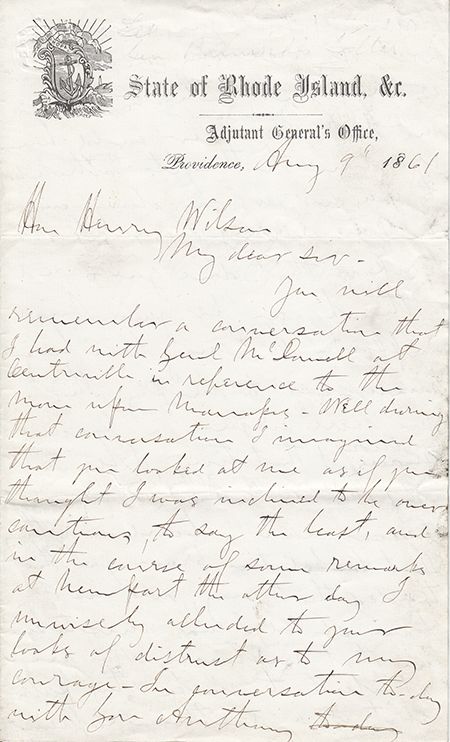 State of Rhode Island, &c.
Adjutant General's Office,
Providence, Aug 9th 1861
Hon Henry Wilson
My dear sir -
You will
remember a conversation that
I had with Genl McDowell at
Centreville in reference to the
move upon Manassas - Well during
that conversation I imagined
that you looked at me as if you
thought I was inclined to be over
cautious, to say the least, and
in the course of some remarks
at Newport the other day I
unwisely alluded to your
looks of distrust as to my
courage - In conversation to-day
with Gov Anthony to-day